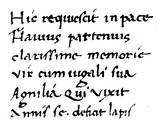 Hic requiescit in pace
Flavius patronus
clarissime memorie
vir cum iugali sua
Agnilia Qui vixit
Annis se. dehat lapis